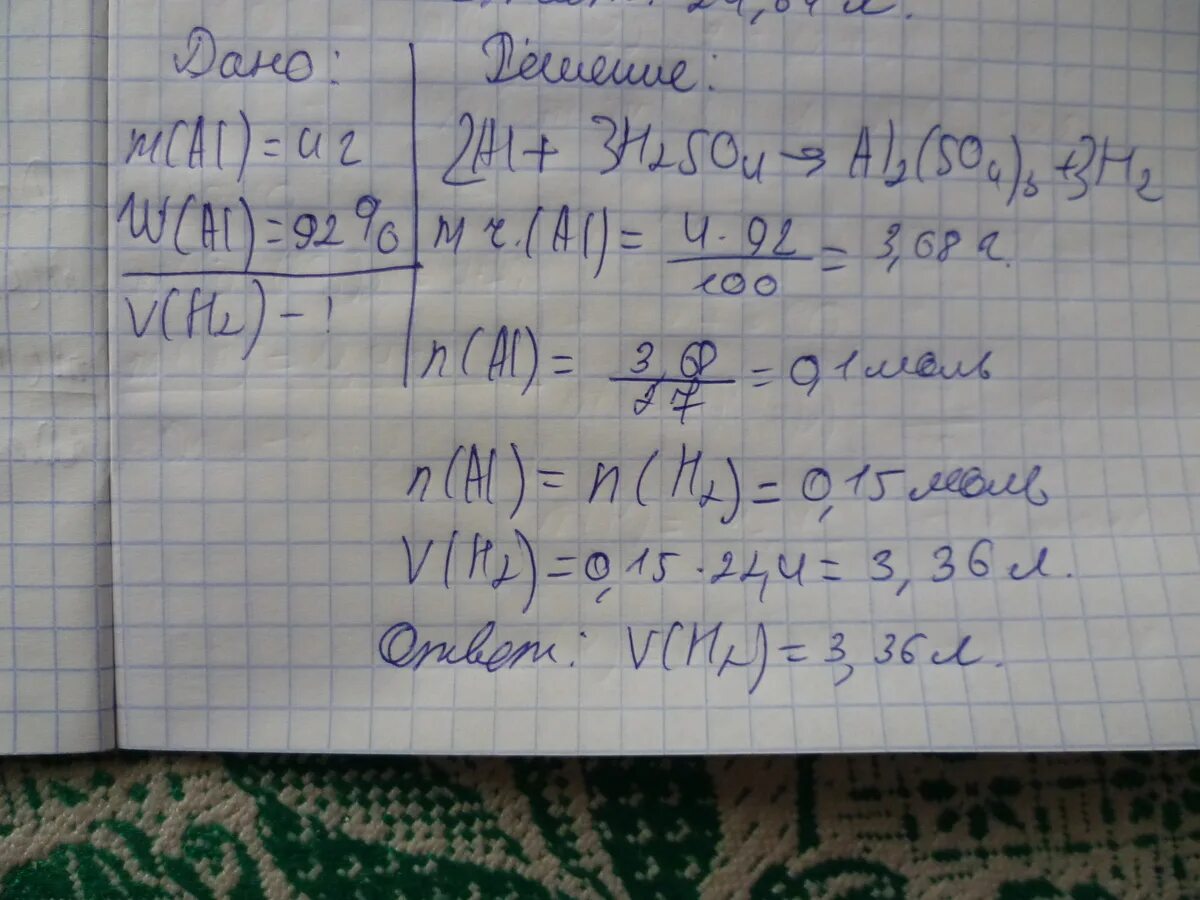 24,64 л.
Дано:
m(Al) = 4 г
W(Al) = 92%
V(H2) - ?
Решение:
2Al + 3H2SO4 → Al2(SO4)3 + 3H2
m ч. (Al) = 4 · 92 / 100 = 3,68 г.
n(Al) = 3,68 / 27 = 0,1 моль
n(Al) = n(H2) = 0,15 моль
V(H2) = 0,15 · 22,4 = 3,36 л.
Ответ: V(H2) = 3,36 л.